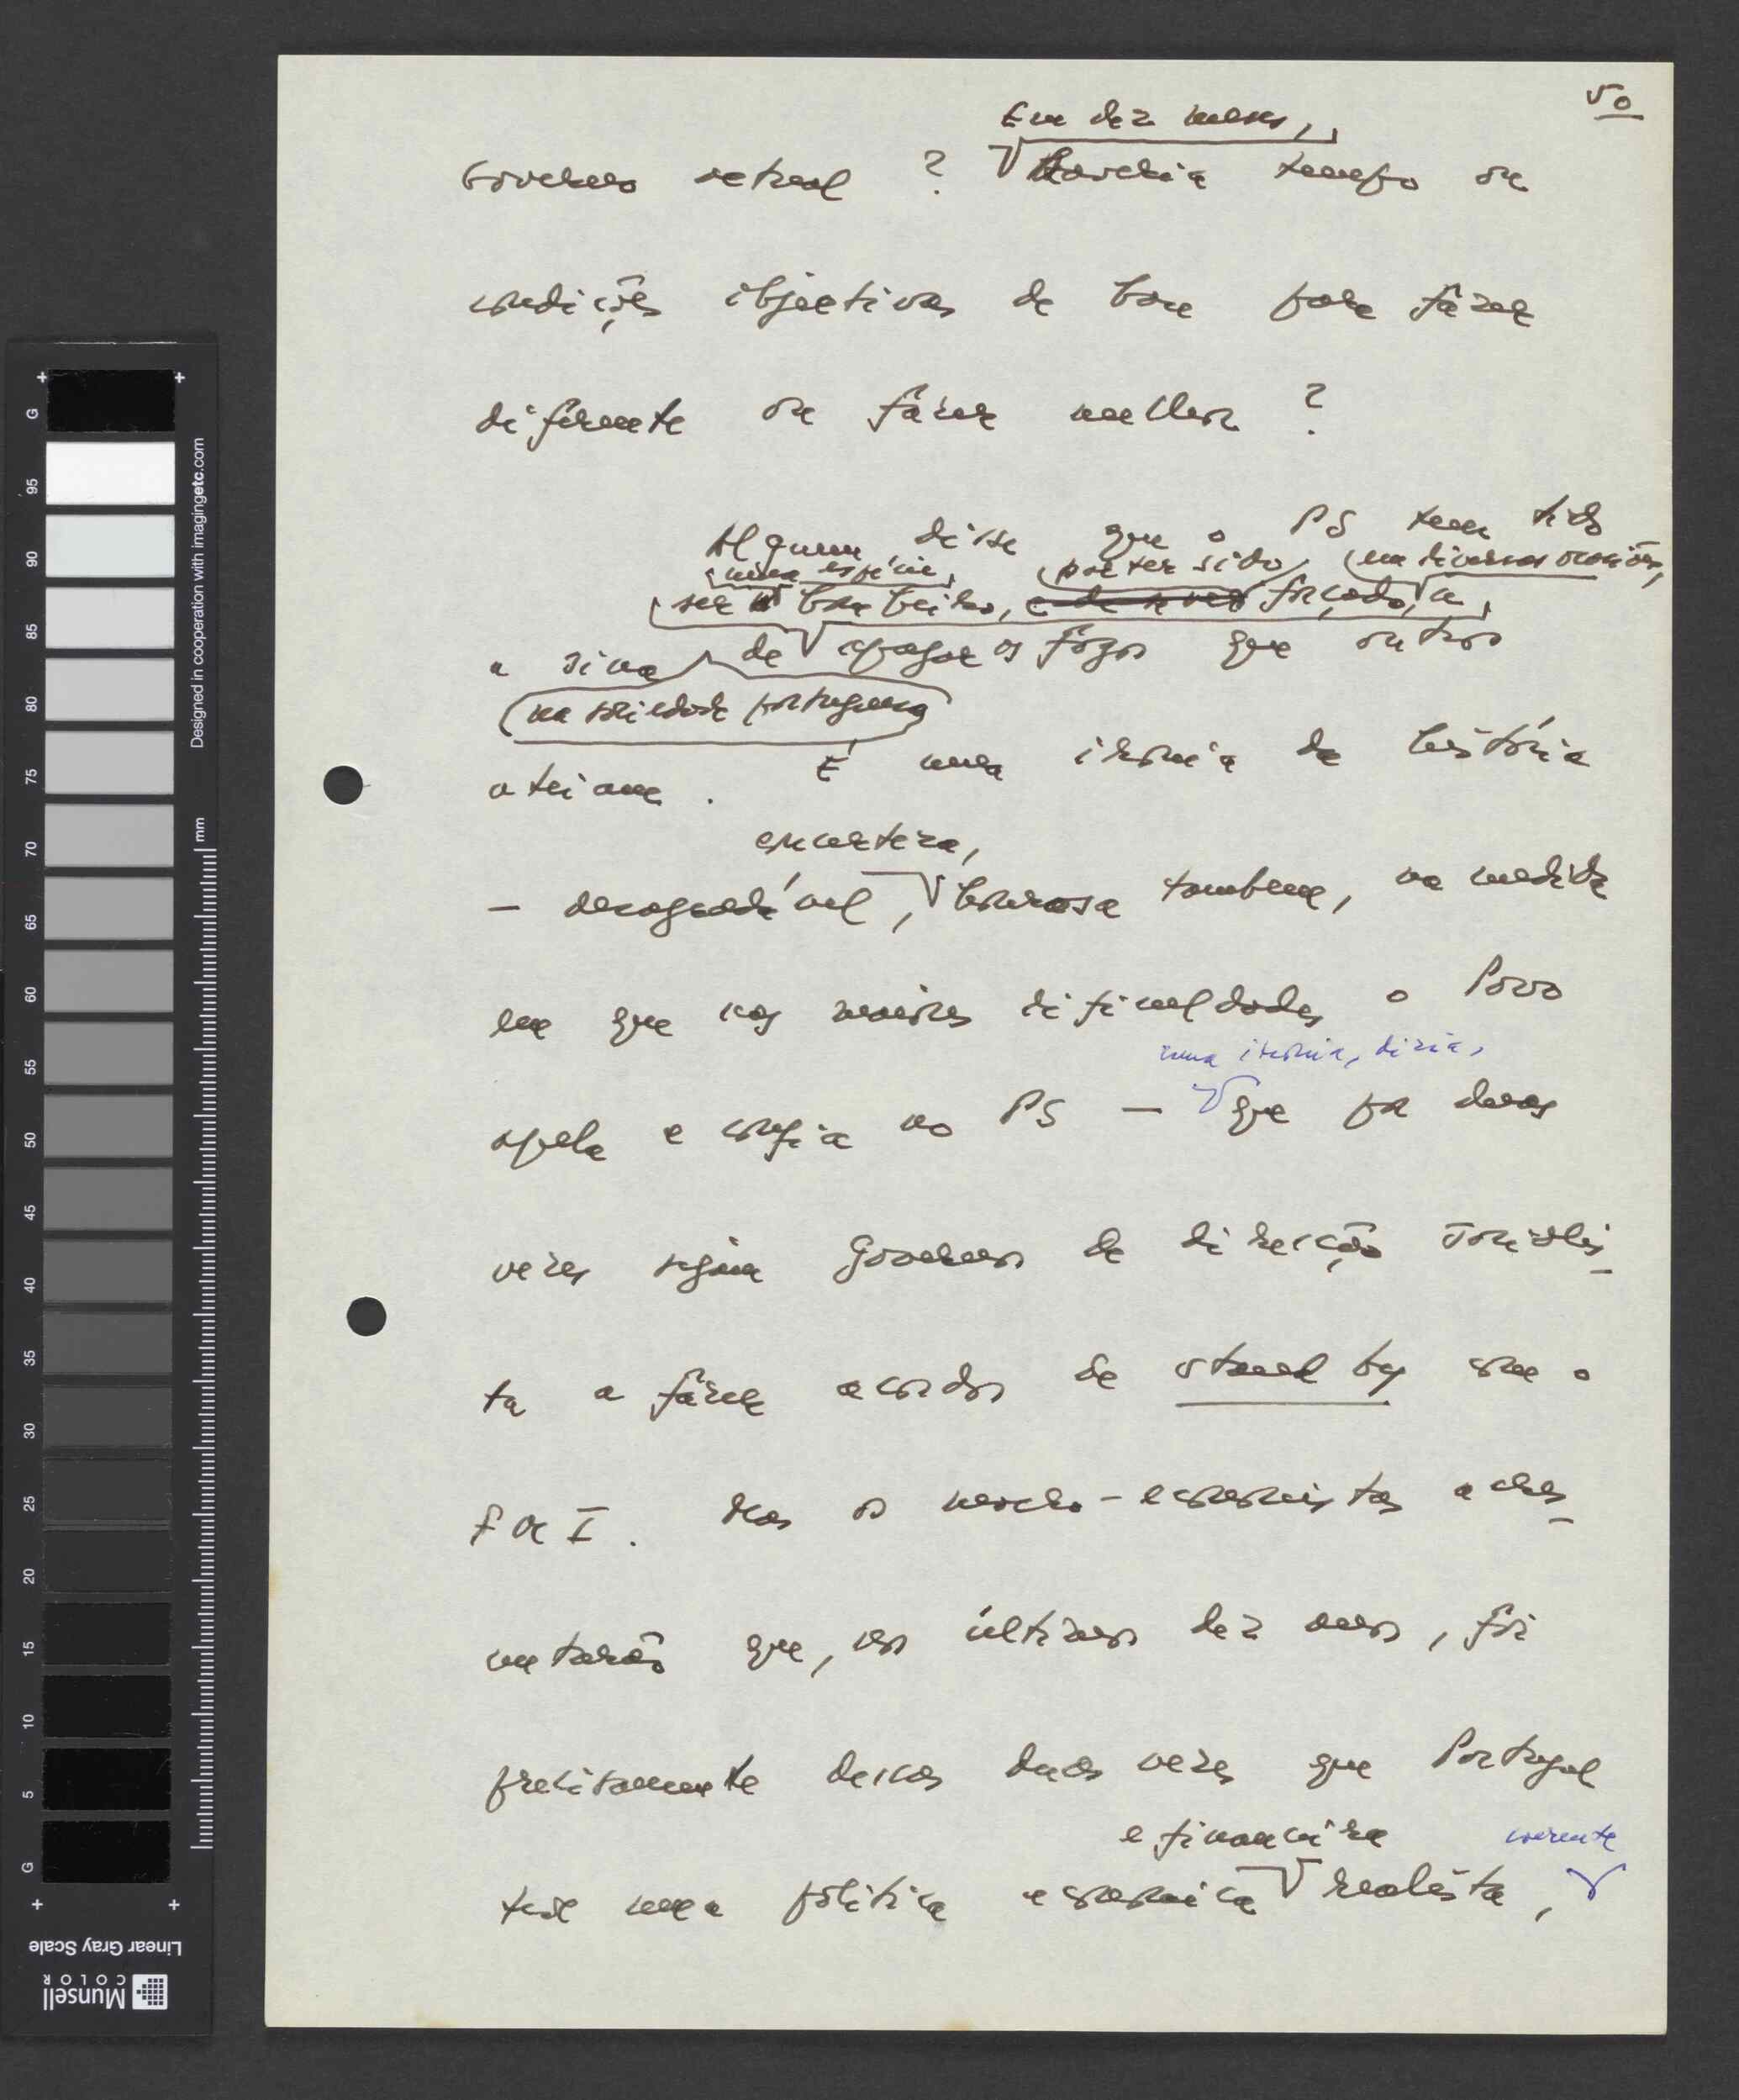 50
Em dez meses,
Governo actual ? Haveria tempo ou
condições objectivas de base para fazer
diferente ou fazer melhor ?
Alguem disse que o PS tem tido
uma espécie, por ter sido, em diversas ocasiões,
ser bombeiro, forçado, a
a sina de apagar os fogos que outros
na sociedade portuguesa
ateiam . É uma ironia da história
encorteza,
- desagradável, honrosa tambem, na medida
em que nas maiores dificuldades o Povo
uma ironia, diria,
apela e confia no PS - que por duas
vezes seguiu Governos de direcção socialis
ta a fazer acordos de stand by com o
FMI . Mas os macro-economistas acres
centarão que, nos últimos dez anos, foi
precisamente dessas duas vezes que Portugal
e financeira coerente
teve uma política económica realista,